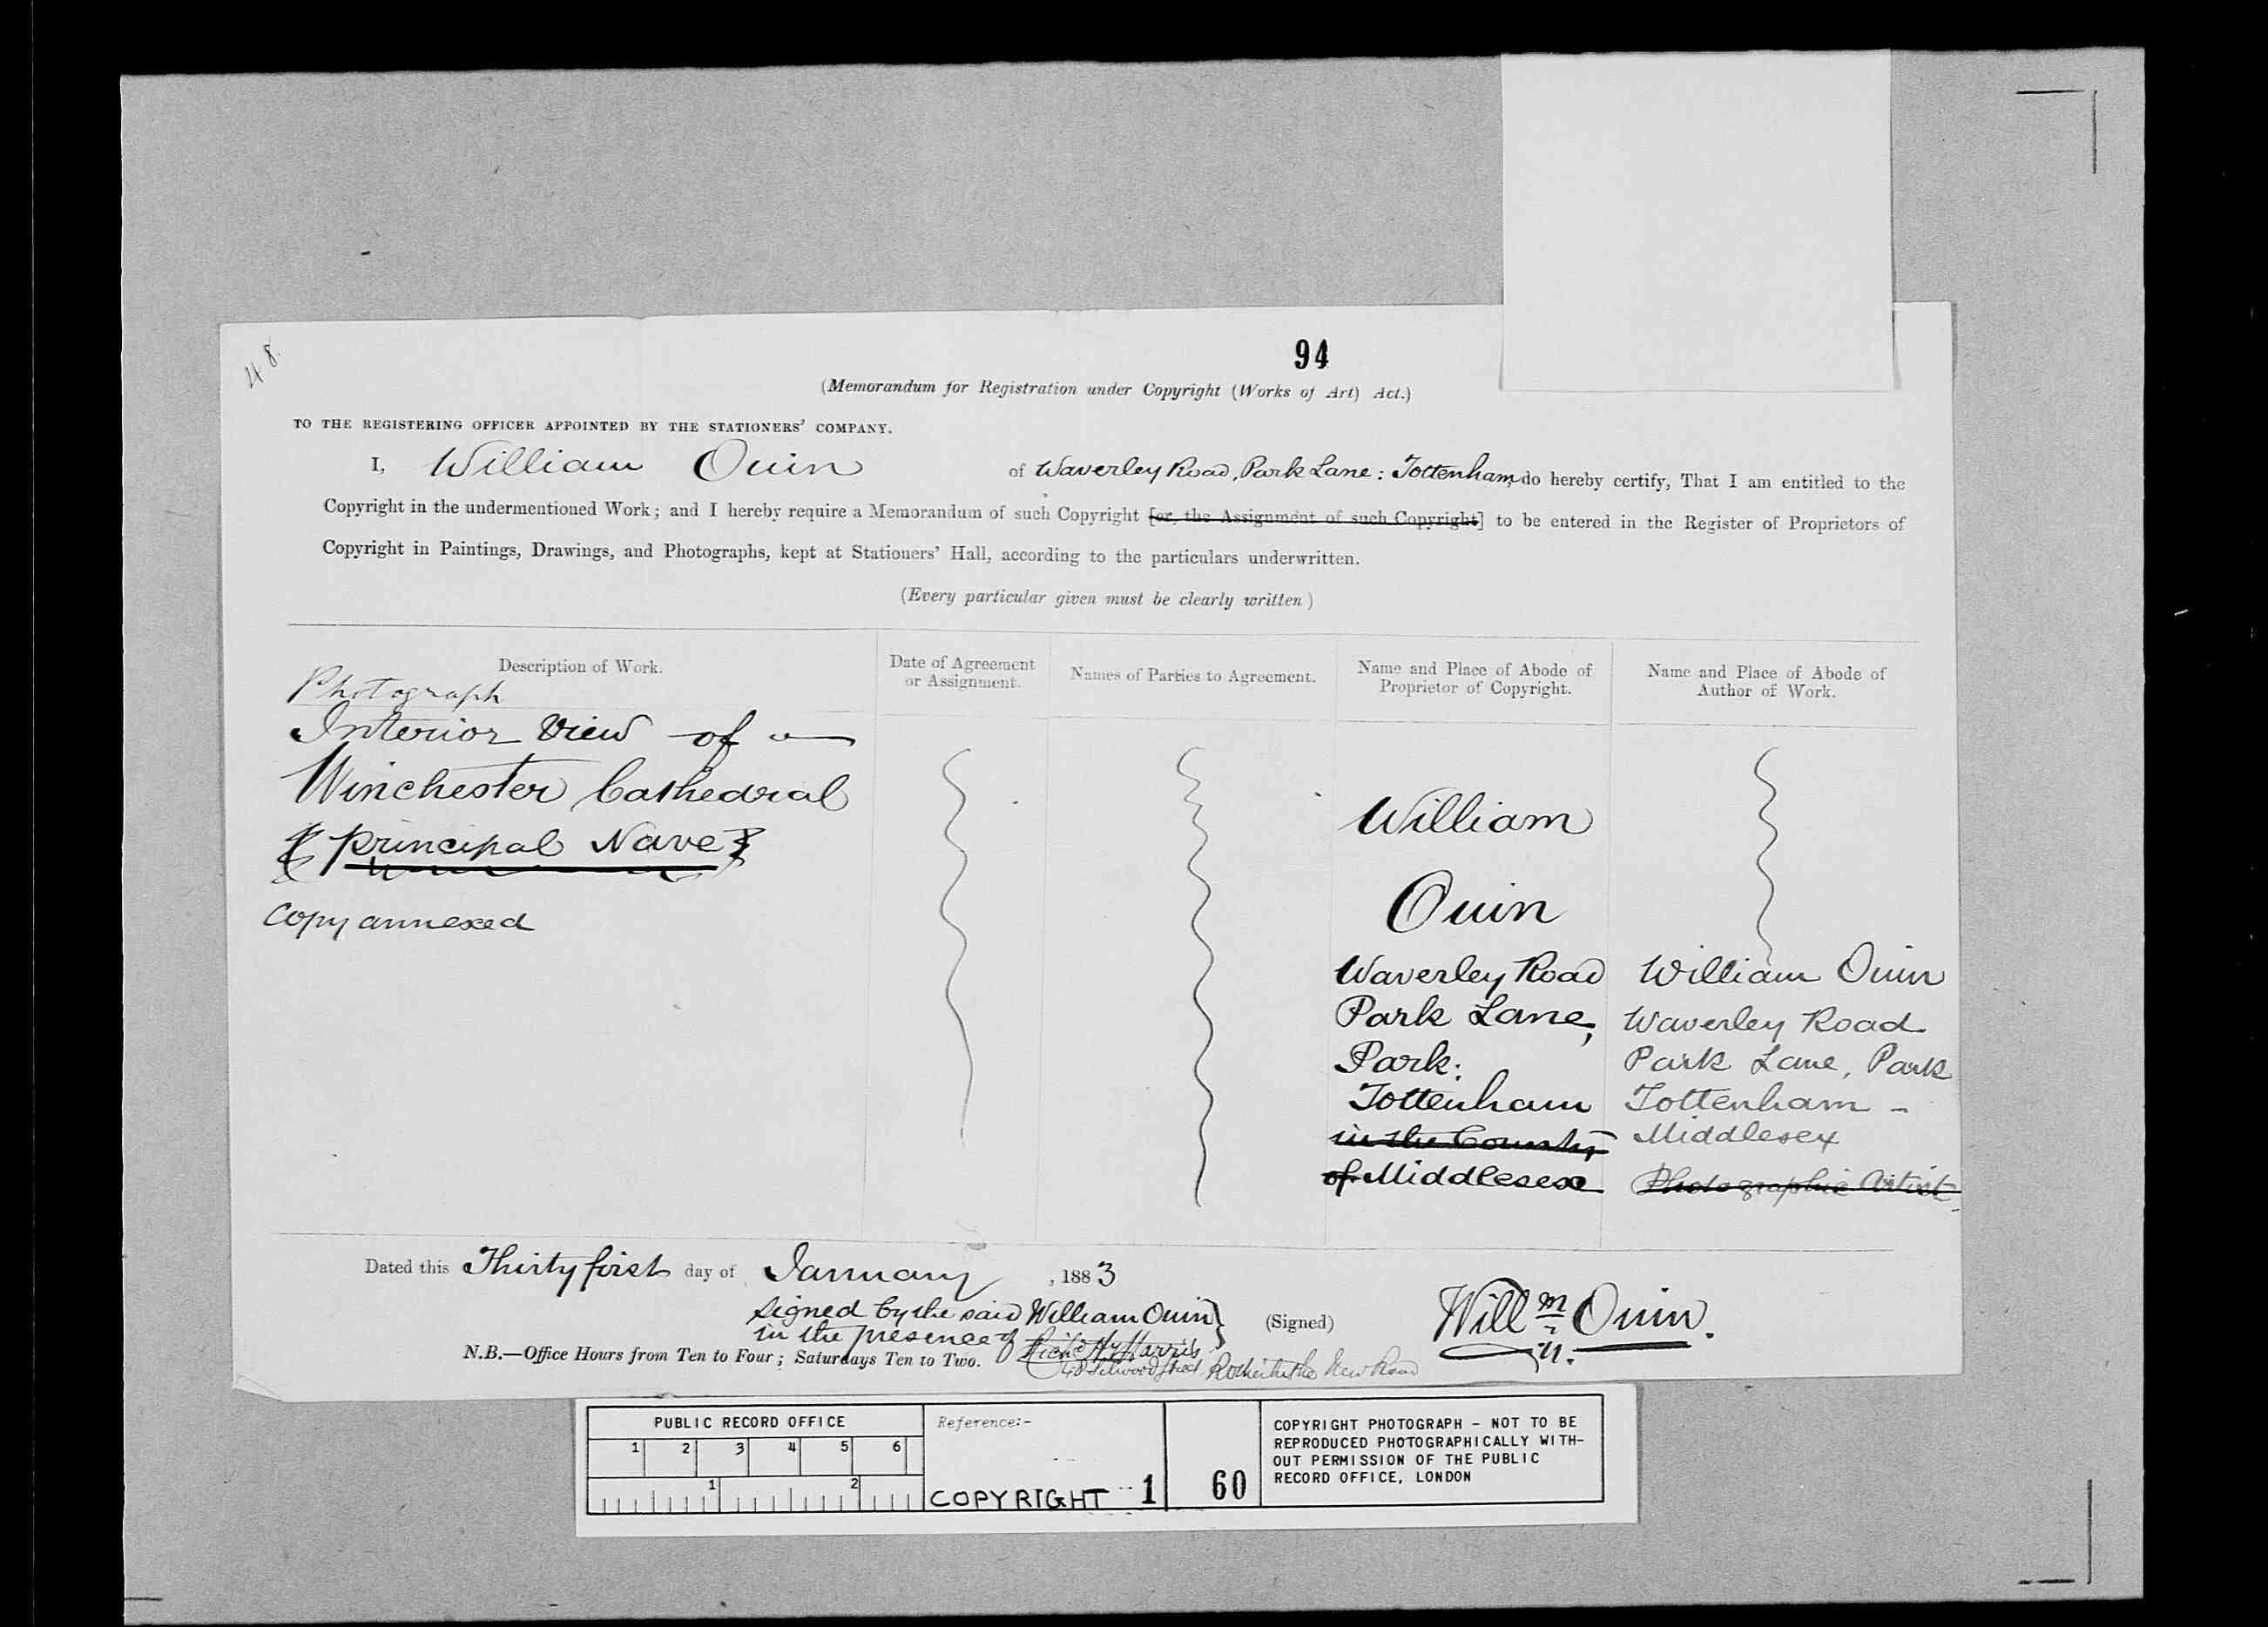 94
48.
(Memorandum for Registration under Copyright (Works of Art) Act.)
TO THE REGISTERING OFFICER APPOINTED BY THE STATIONERS' COMPANY.
I, William Quin of Waverley Road, Park Lane: Tottenham, do hereby certify, That I am entitled to the
Copyright in the undermentioned Work; and I hereby require a Memorandum of such Copyright [or, the Assignment of such Copyright] to be entered in the Register of Proprietors of
Copyright in Paintings, Drawings, and Photographs, kept at Stationers' Hall, according to the particulars underwritten.
(Every particular given must be clearly written)
Description of Work.
Photograph
Interior View of
Winchester Cathedral
principal Nave
Copy annexed
Date of Agreement
or Assignment.
Names of Parties to Agreement.
Name and Place of Abode of
Proprietor of Copyright.
William
Quin
Waverley Road
Park Lane,
Park:
Tottenham
in the County
of Middlesex
Name and Place of Abode of
Author of Work.
William Quin
Waverley Road
Park Lane, Park
Tottenham -
Middlesex
Photographic Artist
Dated this Thirty first day of January, 1883
Signed by the said William Quin }
in the presence of Richd Hy Harris
(Signed) Willm Quin.
N.B.—Office Hours from Ten to Four; Saturdays Ten to Two.
Rotherhithe New Road
PUBLIC RECORD OFFICE
1 2 3 4 5 6
1 2
Reference:-
COPYRIGHT 1
60
COPYRIGHT PHOTOGRAPH - NOT TO BE
REPRODUCED PHOTOGRAPHICALLY WITH-
OUT PERMISSION OF THE PUBLIC
RECORD OFFICE, LONDON